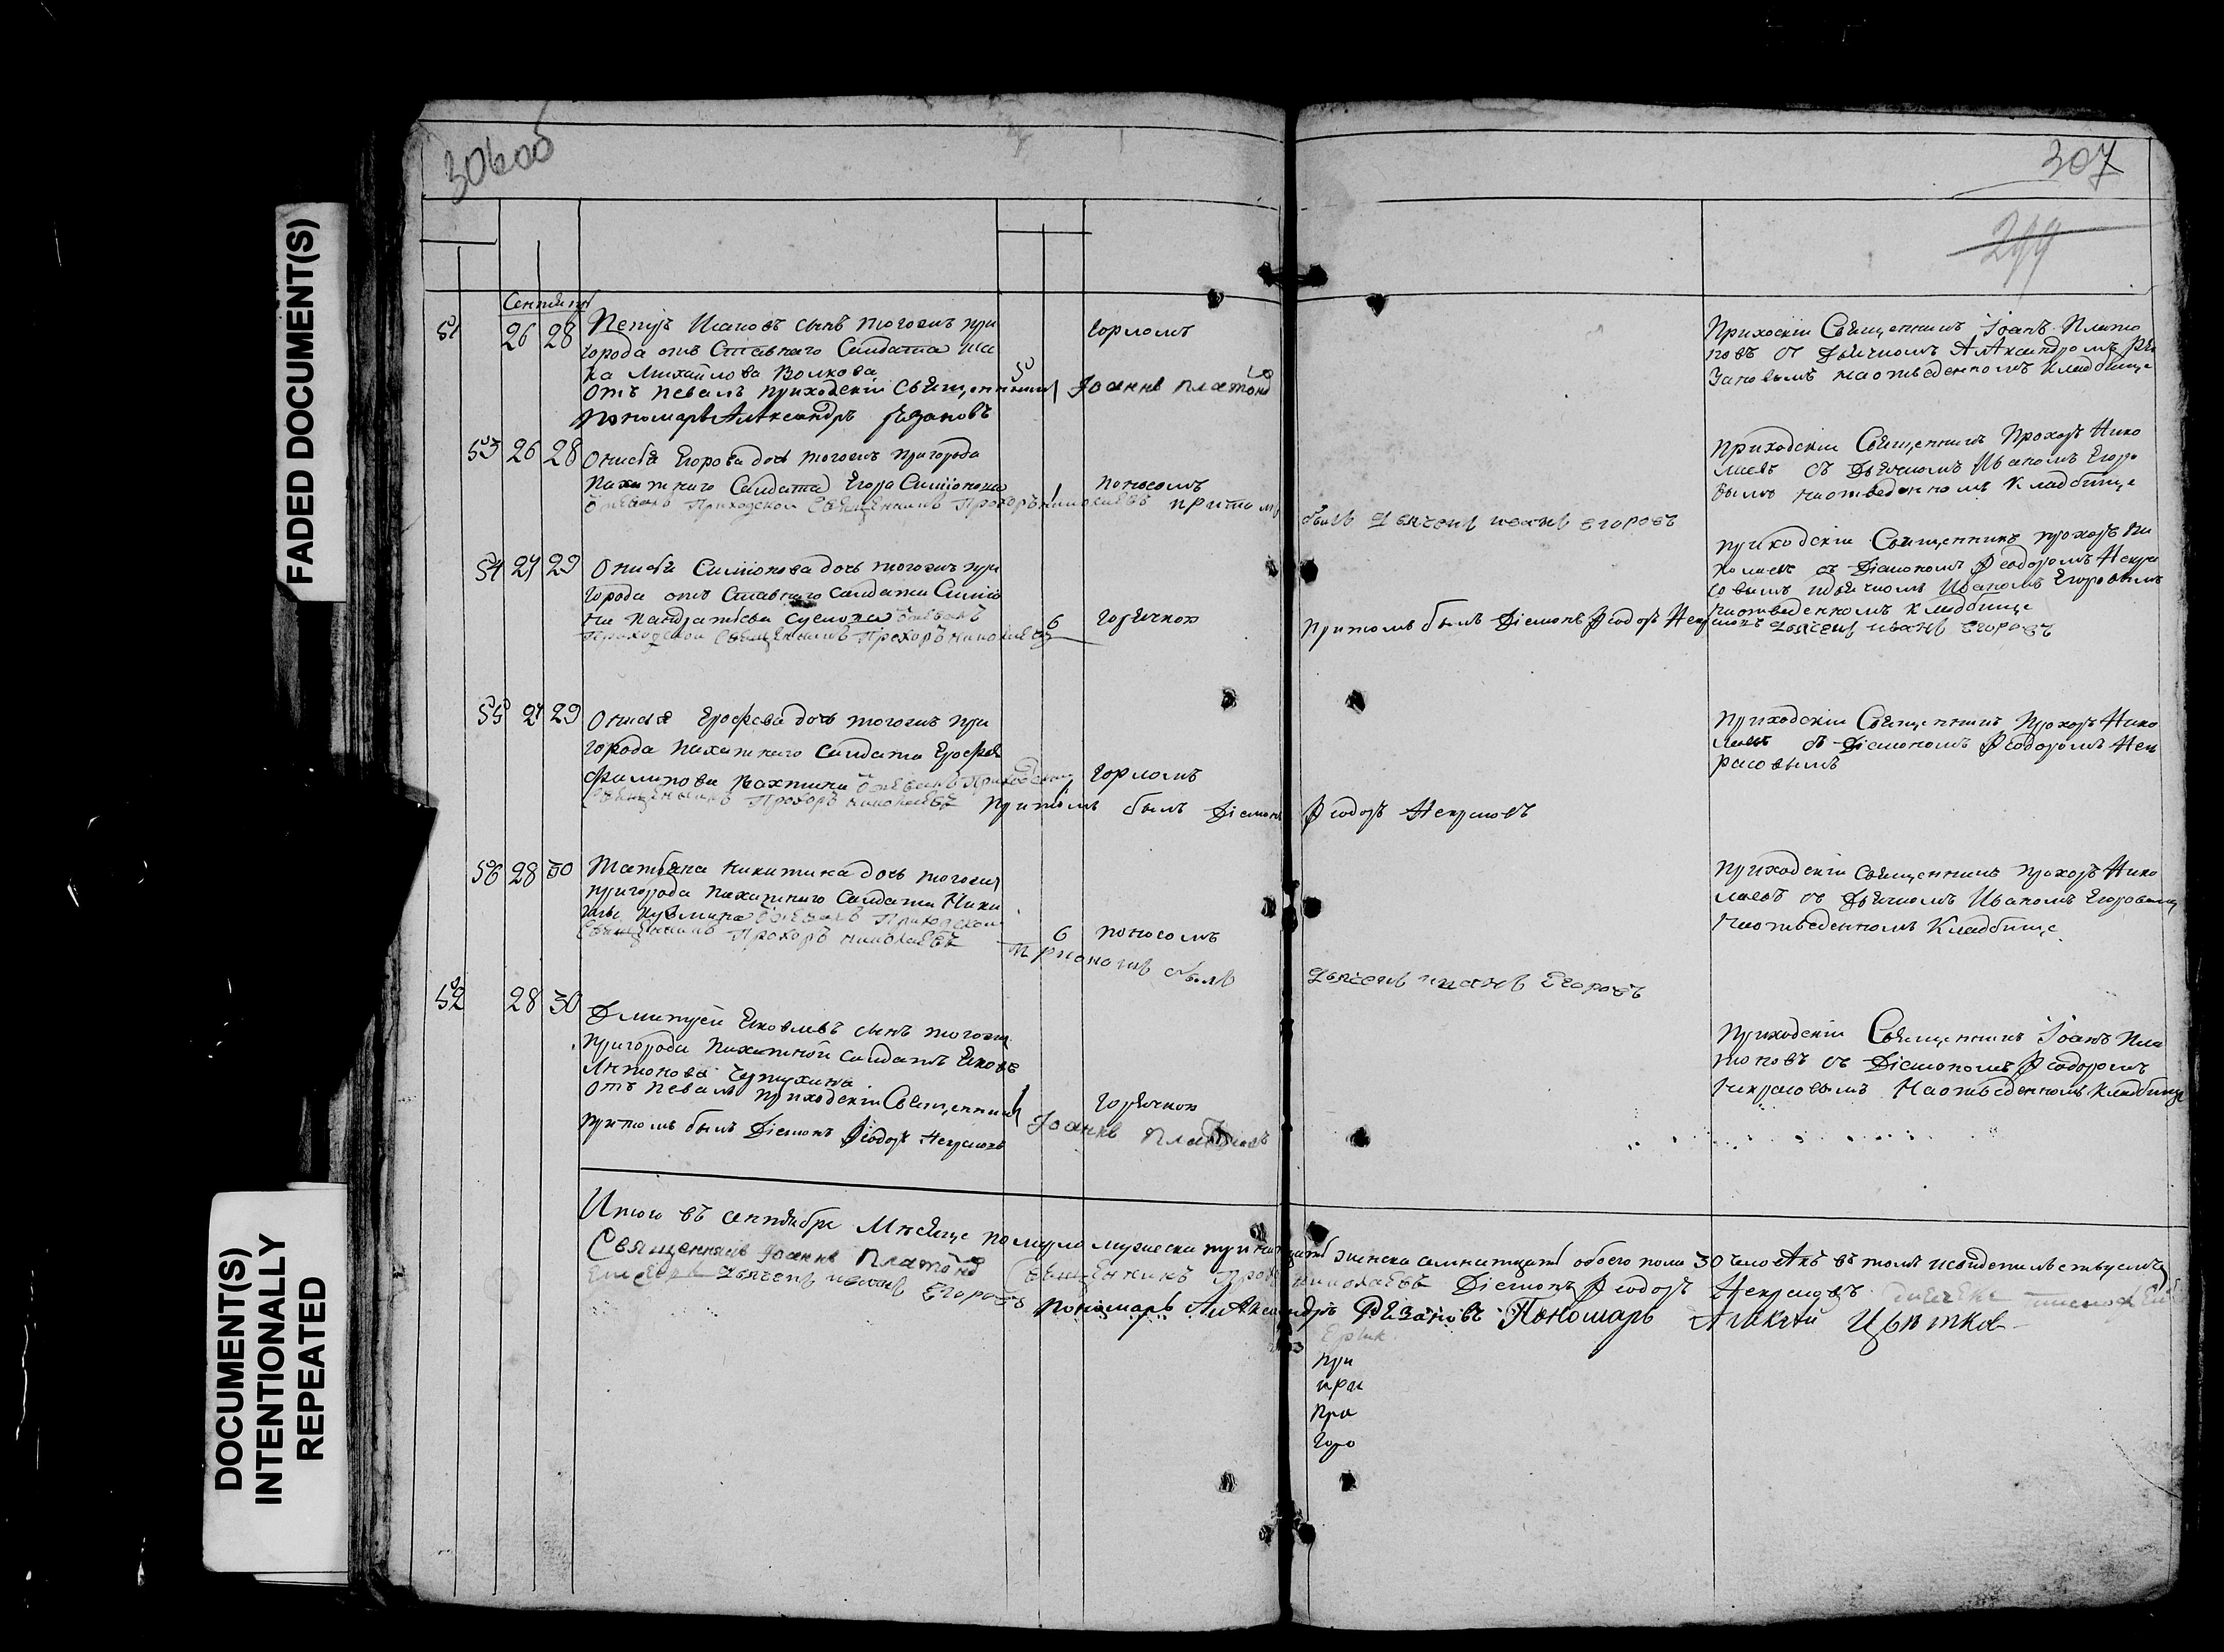 FADED DOCUMENT(S)
DOCUMENT(S)
INTENTIONALLY
REPEATED
306об
307
299
Сентябр
51 26 28 Петръ Исаковъ сынъ тогожъ при
города отъ Ставнаго Салдата Иса
ка Михайлова Волкова 5 Горломъ
Отъ певалъ приходскій Священникъ Іоаннъ Платонов
Пономарь Александръ Рѣзановъ
Приходскіи Священникъ Іоанъ Плато
новъ съ Дьячкомъ Александромъ Рѣ
зановымъ наотведенномъ Кладбище
53 26 28 Онисья Егорова дочь тогожъ пригорода
Пахатнаго Салдата Егора Симіонова 1 поносомъ
Отпевалъ Приходской Священникъ Прохоръ николаевъ притомъ
былъ Дьячекъ иванъ егоровъ
Приходскіи Священникъ Прохоръ Нико
лаевъ съ Дьячкомъ Иваномъ Егоро
вымъ наотведенномъ Кладбище
54 27 29 Онисья Симіонова дочь тогожъ при
города отъ Ставнаго салдата Симіо
на Пандратьева отпевалъ 6 Горячкою
Приходской Священникъ Прохоръ николаевъ
притомъ былъ Діаконъ Феодоръ Некрасовъ Дьячекъ иванъ Егоровъ
приходскіи Священникъ прохоръ Ни
колаевъ съ Діакономъ Феодоромъ Некра
совымъ идьячкомъ Иваномъ Егоровымъ
наотведенномъ кладбище
55 27 29 Онисья Ерофеева дочь тогожъ при
города пахатнаго салдата Ерофея
Филипова Вахтина отпевалъ Приходской 1 Горломъ
Священникъ Прохоръ николаевъ притомъ былъ Діаконъ
Феодоръ Некрасовъ
Приходскіи Священникъ Прохоръ Нико
лаевъ съ Діакономъ Феодоромъ Нек
расовымъ
56 28 30 Татьяна Никитина дочь тогожъ
пригорода пахатнаго Салдата Ники
ты Кузмина отпевалъ Приходской 6 поносомъ
Священникъ Прохоръ николаевъ
приономъ былъ
Дьячекъ иванъ Егоровъ
Приходскіи священникъ прохоръ Нико
лаевъ съ Дьячкомъ Иваномъ Егоровымъ
Наотведенномъ Кладбище
52 28 30 Дмитрей Яковлевъ сынъ тогожъ
пригорода Пахатной салдатъ Яковъ
Антонова
Отъ певалъ приходскіи Священникъ 1 Горячкою
Іоаннъ Платоновъ
притомъ былъ Діаконъ Феодоръ Некрасовъ
Приходскіи Священникъ Іоанъ Пла
тоновъ съ Діакономъ Феодоромъ
Некрасовымъ Наотведенномъ Кладбище
Итого въ сентябре Месяце померло мужеска тринадцать женска семнатцать обоего пола 30 человекъ въ томъ исвидетельствуемъ
Священникъ Іоаннъ Платонов Священникъ Прохоръ николаевъ Діаконъ Феодоръ Некрасовъ
Дьячекъ иванъ Егоровъ Пономарь Александръ Рѣзановъ Пономарь Алексѣй Цвѣтков
при
при
Пра
Горо